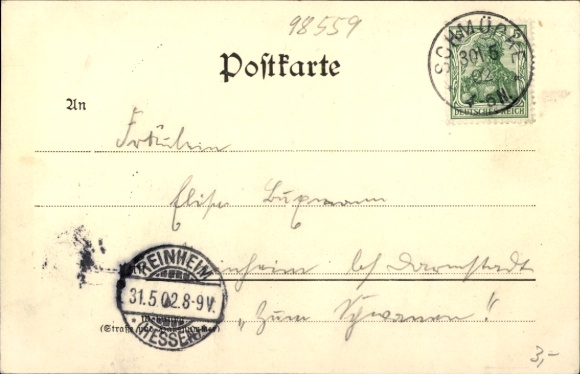 98559
Postkarte
SCHMÜCKE
30/5
02
4-5N.
DEUTSCHES REICH
An
Fräulein
Elise
REINHEIM
bei Darmstadt
31.5.02.8-9V.
(HESSEN)
"Zum Schwanen"
Wohnung
(Straße und Hausnummer)
3,-